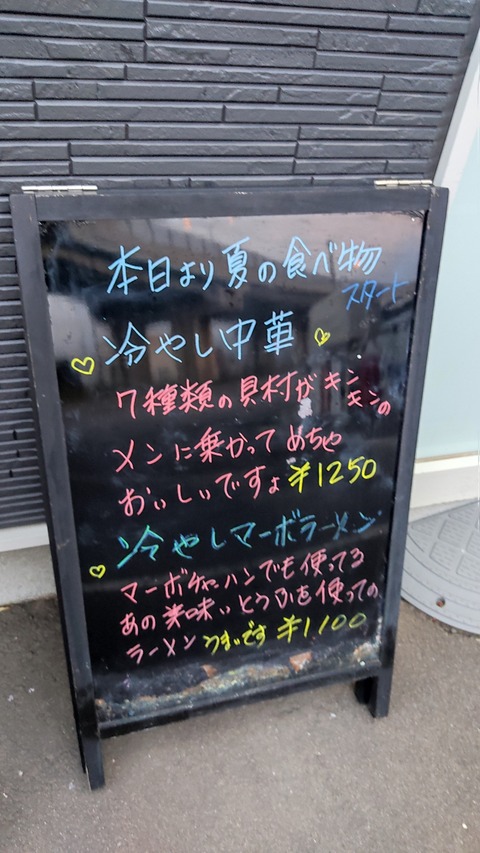 本日より夏の食べ物
スタート
冷やし中華
7種類の具材がキンキンの
メンに乗かってめちゃ
おいしいですょ ¥1250
冷やしマーボラーメン
マーボチャーハンでも使ってる
あの美味いとうふを使っての
ラーメンうまいです ¥1100